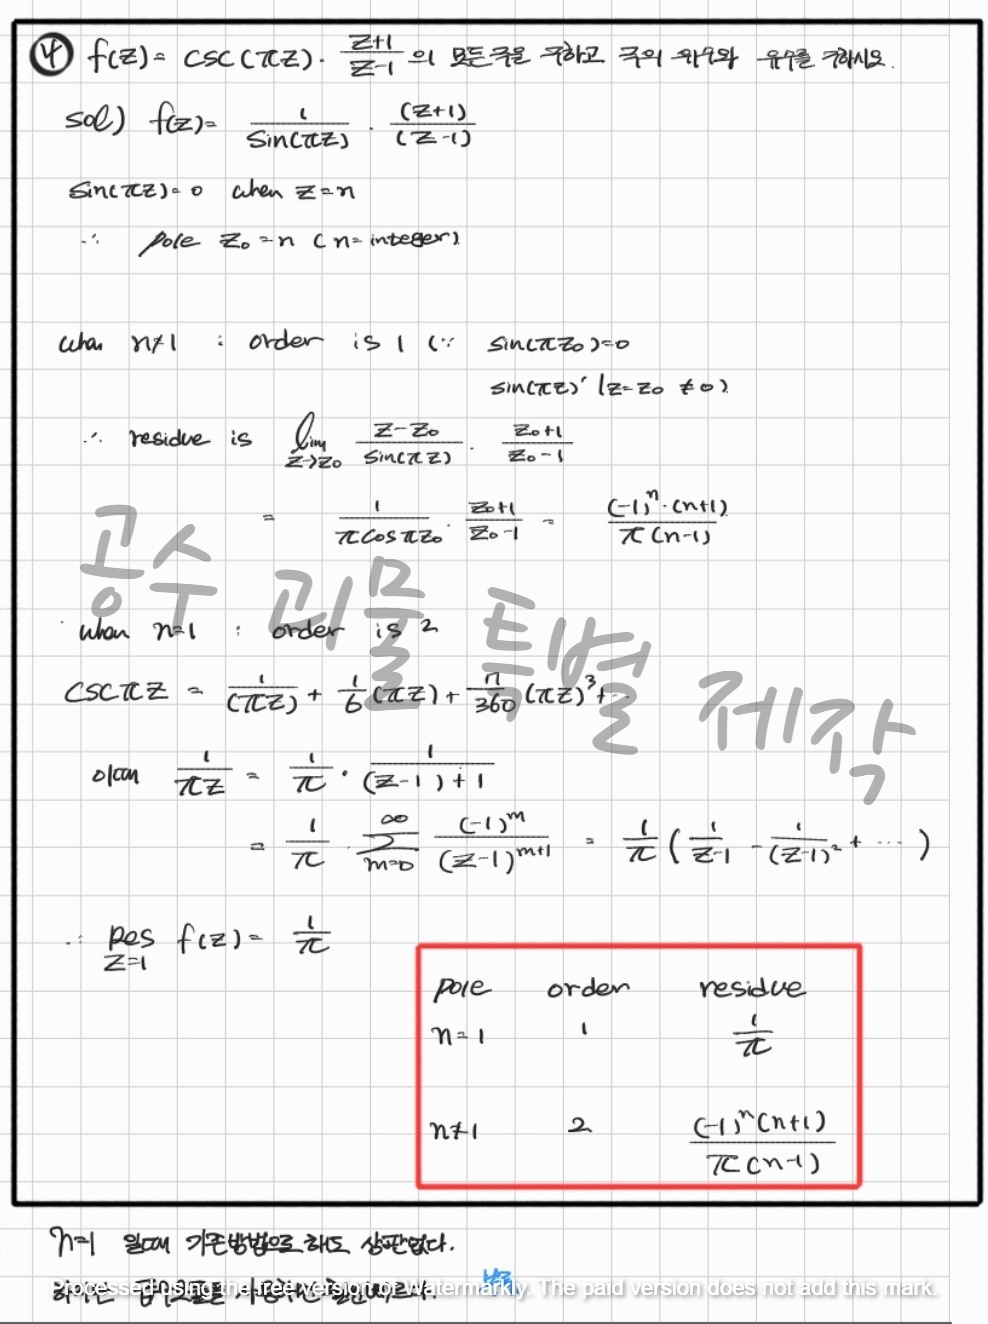 ④ f(z)= csc(πz)· z+1/z-1 의 모든 극을 구하고 극의 위수와 유수를 구하시오.
sol) f(z)= 1/sin(πz) · (z+1)/(z-1)
sin(πz)=0 when z=n
∴ pole z₀=n (n=integer)
when n≠1 : order is 1 (∵ sin(πz₀)=0
sin(πz)' |z=z₀ ≠0)
∴ residue is lim z→z₀ z-z₀/sin(πz) · z₀+1/z₀-1
= 1/πcosπz₀ · z₀+1/z₀-1 = (-1)ⁿ·(n+1)/π(n-1)
공수 괴물 특별 제작
when n=1 : order is 2
cscπz = 1/(πz) + 1/6 (πz) + 7/360 (πz)³+…
1/πz = 1/π · 1/(z-1)+1
= 1/π · ∑ m=0 ∞ (-1)^m/(z-1)^m+1 = 1/π ( 1/z-1 - 1/(z-1)² + … )
∴ Res z=1 f(z)= 1/π
pole order residue
n=1 1 1/π
n≠1 2 (-1)ⁿ(n+1)/π(n-1)
n=1 일때 기존방법으로 해도 상관없다.
Processed using the free version of Watermarkly. The paid version does not add this mark.